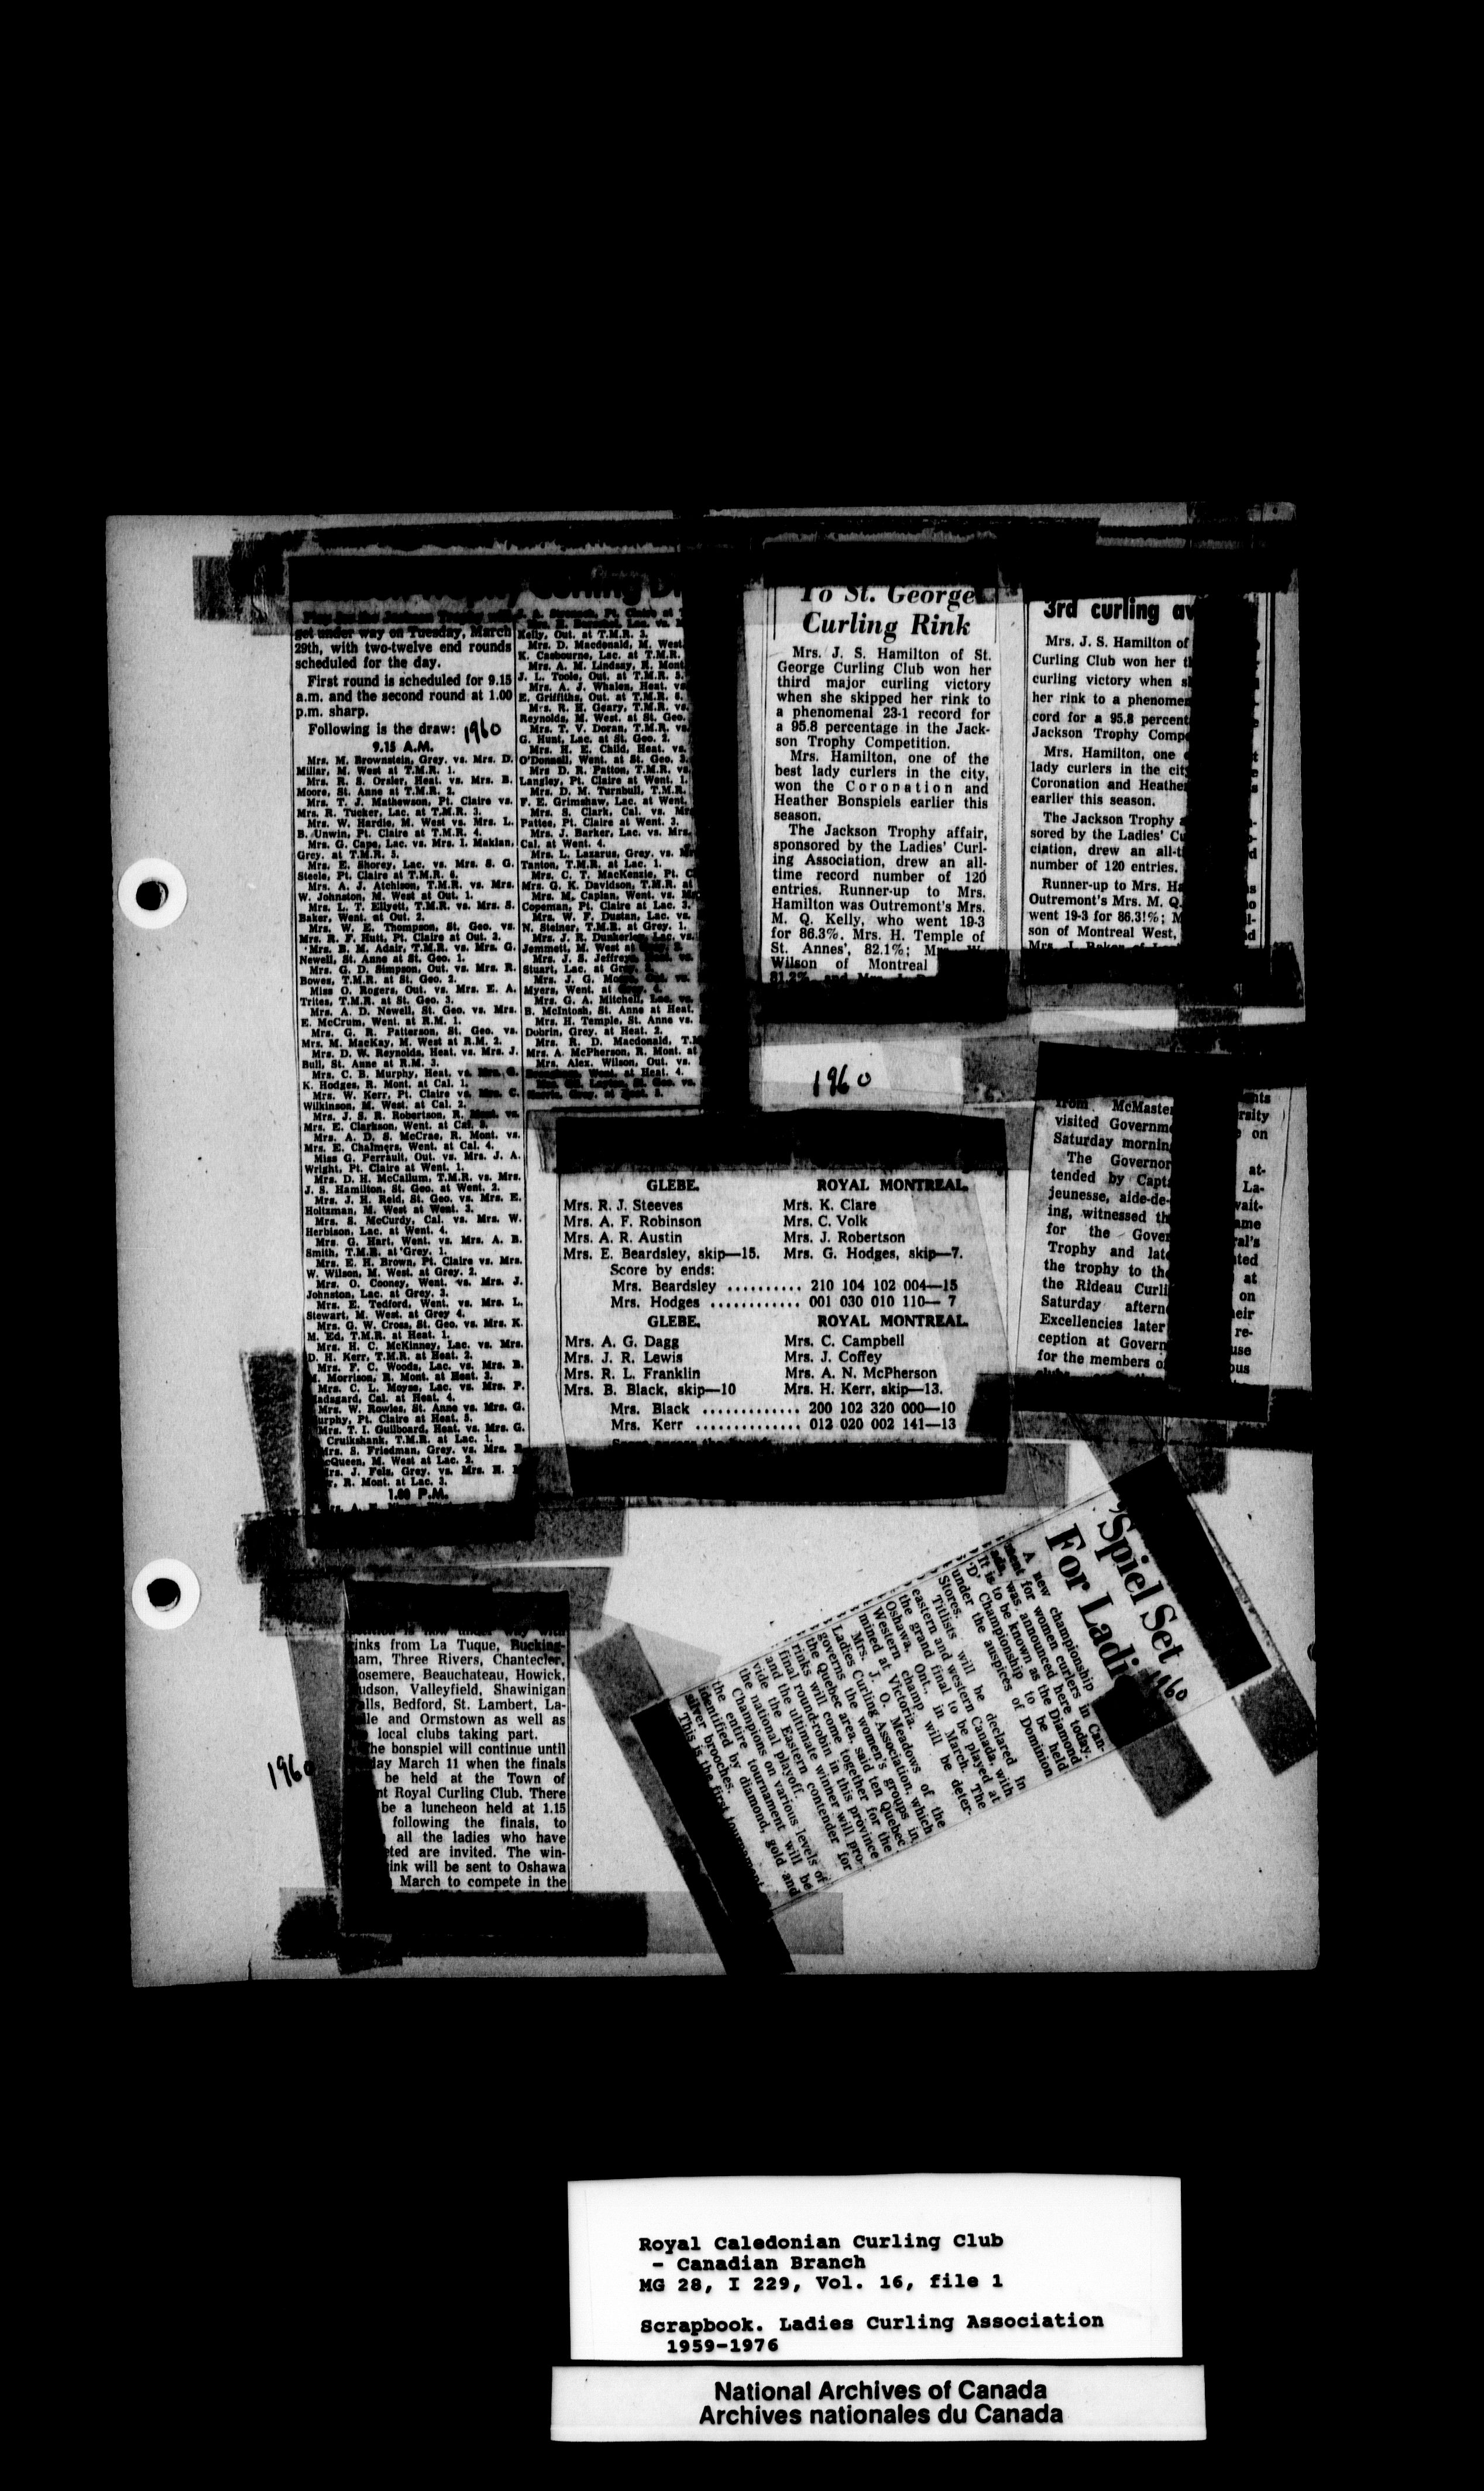 get under way on Tuesday, March
29th, with two-twelve end rounds
scheduled for the day.
First round is scheduled for 9.15
a.m. and the second round at 1.00
p.m. sharp.
Following is the draw: 1960
9.15 A.M.
Mrs. M. Brownstein, Grey. vs. Mrs. D.
Millar, M. West at T.M.R. 1.
Mrs. R. S. Orsler, Heat. vs. Mrs. B.
Moore, St. Anne at T.M.R. 2.
Mrs. T. J. Mathewson, Pt. Claire vs.
Mrs. R. Tucker, Lac. at T.M.R. 3.
Mrs. W. Hardie, M. West vs. Mrs. L.
B. Unwin, Pt. Claire at T.M.R. 4.
Mrs. G. Cape, Lac. vs. Mrs. I. Maklan,
Grey. at T.M.R. 5.
Mrs. E. Shorey, Lac. vs. Mrs. S. G.
Steele, Pt. Claire at T.M.R. 6.
Mrs. A. J. Atchison, T.M.R. vs. Mrs.
W. Johnston, M. West at Out. 1.
Mrs. L. T. Ellyett, T.M.R. vs. Mrs. S.
Baker, Went. at Out. 2.
Mrs. W. E. Thompson, St. Geo. vs.
Mrs. R. F. Hutt, Pt. Claire at Out. 3.
Mrs. B. M. Adair, T.M.R. vs. Mrs. G.
Newell, St. Anne at St. Geo. 1.
Mrs. G. D. Simpson, Out. vs. Mrs. R.
Bowes, T.M.R. at St. Geo. 2.
Miss O. Rogers, Out. vs. Mrs. E. A.
Trites, T.M.R. at St. Geo. 3.
Mrs. A. D. Newell, St. Geo. vs. Mrs.
E. McCrum, Went. at R.M. 1.
Mrs. G. R. Patterson, St. Geo. vs.
Mrs. M. MacKay, M. West at R.M. 2.
Mrs. D. W. Reynolds, Heat. vs. Mrs. J.
Bull, St. Anne at R.M. 3.
Mrs. C. B. Murphy, Heat. vs. Mrs. G.
K. Hodges, R. Mont. at Cal. 1.
Mrs. W. Kerr, Pt. Claire vs. Mrs. C.
Wilkinson, M. West. at Cal. 2.
Mrs. J. S. R. Robertson, R. Mont. vs.
Mrs. E. Clarkson, Went. at Cal. 3.
Mrs. A. D. S. McCrae, R. Mont. vs.
Mrs. E. Chalmers, Went. at Cal. 4.
Miss G. Perrault, Out. vs. Mrs. J. A.
Wright, Pt. Claire at Went. 1.
Mrs. D. H. McCallum, T.M.R. vs. Mrs.
J. S. Hamilton, St. Geo. at Went. 2.
Mrs. J. H. Reid, St. Geo. vs. Mrs. E.
Holtzman, M. West at Went. 3.
Mrs. S. McCurdy, Cal. vs. Mrs. W.
Herbison, Lac. at Went. 4.
Mrs. G. Hart, Went. vs. Mrs. A. B.
Smith, T.M.R. at Grey. 1.
Mrs. E. H. Brown, Pt. Claire vs. Mrs.
W. Wilson, M. West. at Grey. 2.
Mrs. O. Cooney, Went. vs. Mrs. J.
Johnston, Lac. at Grey. 3.
Mrs. E. Tedford, Went. vs. Mrs. L.
Stewart, M. West. at Grey 4.
Mrs. G. W. Cross, St. Geo. vs. Mrs. K.
M. Ed, T.M.R. at Heat. 1.
Mrs. H. C. McKinney, Lac. vs. Mrs.
D. H. Kerr, T.M.R. at Heat. 2.
Mrs. F. C. Woods, Lac. vs. Mrs. B.
Morrison, R. Mont. at Heat. 3.
Mrs. C. L. Moyse, Lac. vs. Mrs. P.
adsgard, Cal. at Heat. 4.
Mrs. W. Rowles, St. Anne vs. Mrs. G.
urphy, Pt. Claire at Heat. 5.
Mrs. T. I. Guilboard, Heat. vs. Mrs. G.
Cruikshank, T.M.R. at Lac. 1.
Mrs. S. Friedman, Grey. vs. Mrs.
cQueen, M. West at Lac. 2.
rs. J. Fels, Grey. vs. Mrs. H.
R. Mont. at Lac. 3.
1.00 P.M.
Kelly, Out. at T.M.R. 3.
Mrs. D. Macdonald, M. West
K. Casbourne, Lac. at T.M.R.
Mrs. A. M. Lindsay, R. Mont
J. L. Toole, Out. at T.M.R. 5.
Mrs. A. J. Whalen, Heat. vs
E. Griffiths, Out. at T.M.R. 6.
Mrs. R. H. Geary, T.M.R. vs.
Reynolds, M. West. at St. Geo.
Mrs. T. V. Doran, T.M.R. vs.
G. Hunt, Lac. at St. Geo. 2.
Mrs. H. E. Child, Heat. vs.
O'Donnell, Went. at St. Geo. 3.
Mrs D. R. Patton, T.M.R. vs.
Langley, Pt. Claire at Went. 1.
Mrs. D. M. Turnbull, T.M.R.
F. E. Grimshaw, Lac. at Went.
Mrs. S. Clark, Cal. vs. Mrs
Pattee, Pt. Claire at Went. 3.
Mrs. J. Barker, Lac. vs. Mrs.
Cal. at Went. 4.
Mrs. L. Lazarus, Grey. vs.
Tanton, T.M.R. at Lac. 1.
Mrs. C. T. MacKenzie, Pt. C
Mrs. G. K. Davidson, T.M.R. at
Mrs. M. Caplan, Went. vs.
Copeman, Pt. Claire at Lac. 3.
Mrs. W. F. Dustan, Lac. vs.
N. Steiner, T.M.R. at Grey. 1.
Mrs. J. R. Dunkerley, Lac. vs.
Jemmett, M. West at
Mrs. J. S. Jeffrey
Stuart, Lac. at
Mrs. J. G.
Myers, Went. at
Mrs. G. A. Mitchell, Lac. vs.
B. McIntosh, St. Anne at Heat.
Mrs. H. Temple, St. Anne vs.
Dobrin, Grey. at Heat. 2.
Mrs. R. D. Macdonald, T.M
Mrs. A. McPherson, R. Mont. at
Mrs. Alex. Wilson, Out. vs.
Went. at Heat. 4.
To St. George
Curling Rink
Mrs. J. S. Hamilton of St.
George Curling Club won her
third major curling victory
when she skipped her rink to
a phenomenal 23-1 record for
a 95.8 percentage in the Jack-
son Trophy Competition.
Mrs. Hamilton, one of the
best lady curlers in the city,
won the Coronation and
Heather Bonspiels earlier this
season.
The Jackson Trophy affair,
sponsored by the Ladies' Curl-
ing Association, drew an all-
time record number of 120
entries. Runner-up to Mrs.
Hamilton was Outremont's Mrs.
M. Q. Kelly, who went 19-3
for 86.3%. Mrs. H. Temple of
St. Annes', 82.1%;
Wilson of Montreal
3rd curling
Mrs. J. S. Hamilton of
Curling Club won her
curling victory when
her rink to a
cord for a 95.8 percent
Jackson Trophy
Mrs. Hamilton, one
lady curlers in the
Coronation and Heather
earlier this season.
The Jackson Trophy
sored by the Ladies'
ciation, drew an
number of 120 entries.
Runner-up to Mrs.
Outremont's Mrs. M. Q.
went 19-3 for 86.3!%;
son of Montreal West,
1960
GLEBE. ROYAL MONTREAL.
Mrs. R. J. Steeves Mrs. K. Clare
Mrs. A. F. Robinson Mrs. C. Volk
Mrs. A. R. Austin Mrs. J. Robertson
Mrs. E. Beardsley, skip—15. Mrs. G. Hodges, skip—7.
Score by ends:
Mrs. Beardsley .......... 210 104 102 004—15
Mrs. Hodges ............ 001 030 010 110— 7
GLEBE. ROYAL MONTREAL.
Mrs. A. G. Dagg Mrs. C. Campbell
Mrs. J. R. Lewis Mrs. J. Coffey
Mrs. R. L. Franklin Mrs. A. N. McPherson
Mrs. B. Black, skip—10 Mrs. H. Kerr, skip—13.
Mrs. Black ............. 200 102 320 000—10
Mrs. Kerr .............. 012 020 002 141—13
from McMaster
visited
Saturday
on
The Governor
at-
tended by
La-
jeunesse,
ing, witnessed
for the
Trophy and
the trophy to
at
the Rideau
on
Saturday
Excellencies later
re-
ception at
for the members
'Spiel Set
For Ladi
1960
A new championship
for women curlers in Can-
ada, was announced here today.
It is to be known as the Diamond
'D' Championship to be held
under the auspices of Dominion
Stores.
Titlists will be declared in
eastern and western Canada, with
the grand final to be played at
Oshawa, Ont., in March. The
Western champ will be deter-
mined at Victoria.
Mrs. J. O. Meadows of the
Ladies Curling Association, which
governs the women's groups in
the Quebec area, said ten Quebec
rinks will come together for the
final round-robin in this province
and the ultimate winner will pro-
vide the Eastern contender for
the national playoff.
Champions on various levels of
the entire tournament will be
identified by diamond, gold and
silver brooches.
This is the first tournament
inks from La Tuque, Bucking-
am, Three Rivers, Chantecler,
osemere, Beauchateau, Howick,
udson, Valleyfield, Shawinigan
alls, Bedford, St. Lambert, La-
le and Ormstown as well as
local clubs taking part.
he bonspiel will continue until
day March 11 when the finals
be held at the Town of
nt Royal Curling Club. There
be a luncheon held at 1.15
following the finals, to
all the ladies who have
eted are invited. The win-
ink will be sent to Oshawa
March to compete in the
1960
Royal Caledonian Curling Club
- Canadian Branch
MG 28, I 229, Vol. 16, file 1
Scrapbook. Ladies Curling Association
1959-1976
National Archives of Canada
Archives nationales du Canada